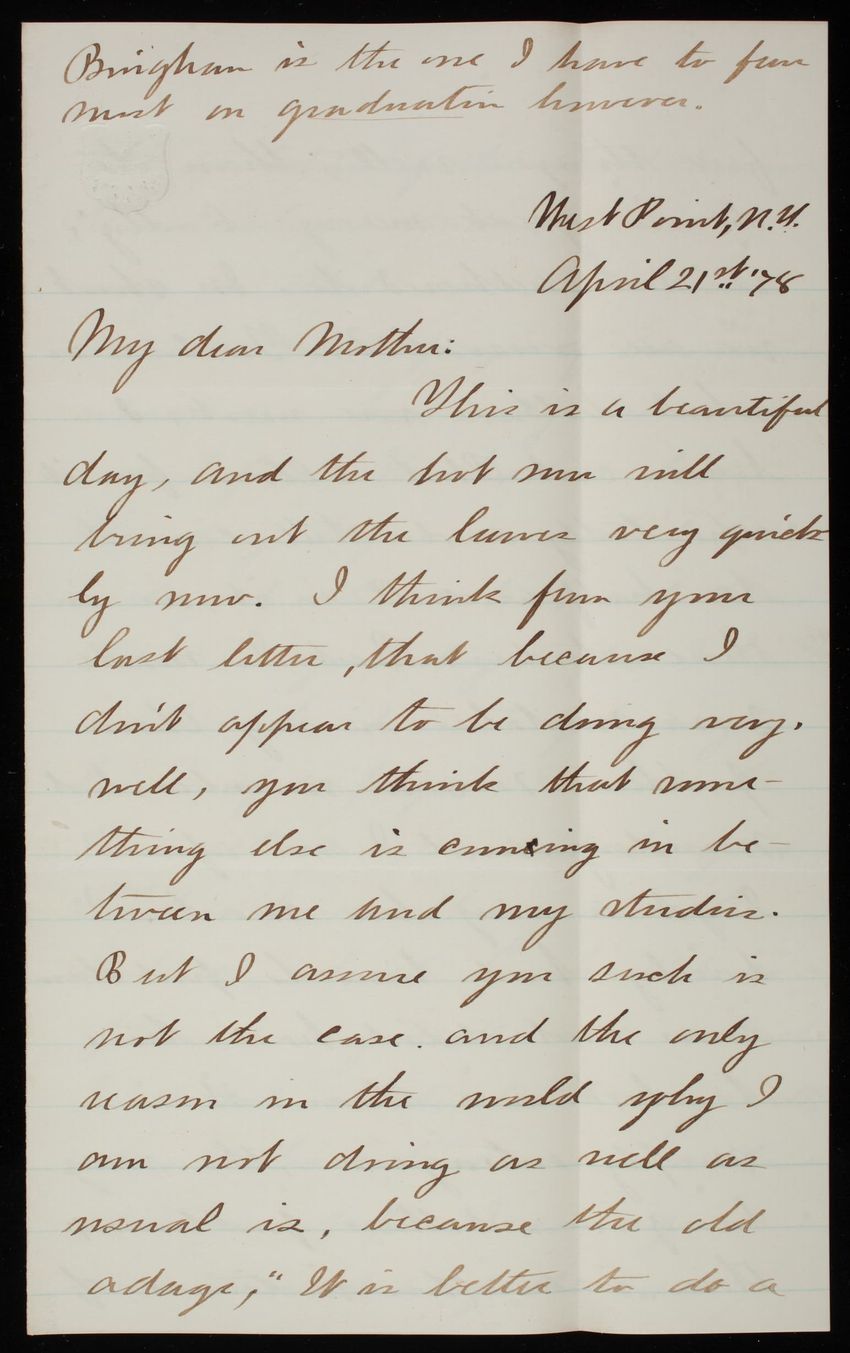 Bingham is the one I have to fear
most on graduation however.
West Point, N.Y.
April 21st '78
My dear Mother:
This is a beautiful
day, and the hot sun will
bring out the leaves very quick-
ly now. I think from your
last letter, that because I
don't appear to be doing very
well, you think that some-
thing else is coming in be-
tween me and my studies.
But I assure you such is
not the case. and the only
reason in the world why I
am not doing as well as
usual is, because the old
adage, "It is better to do a